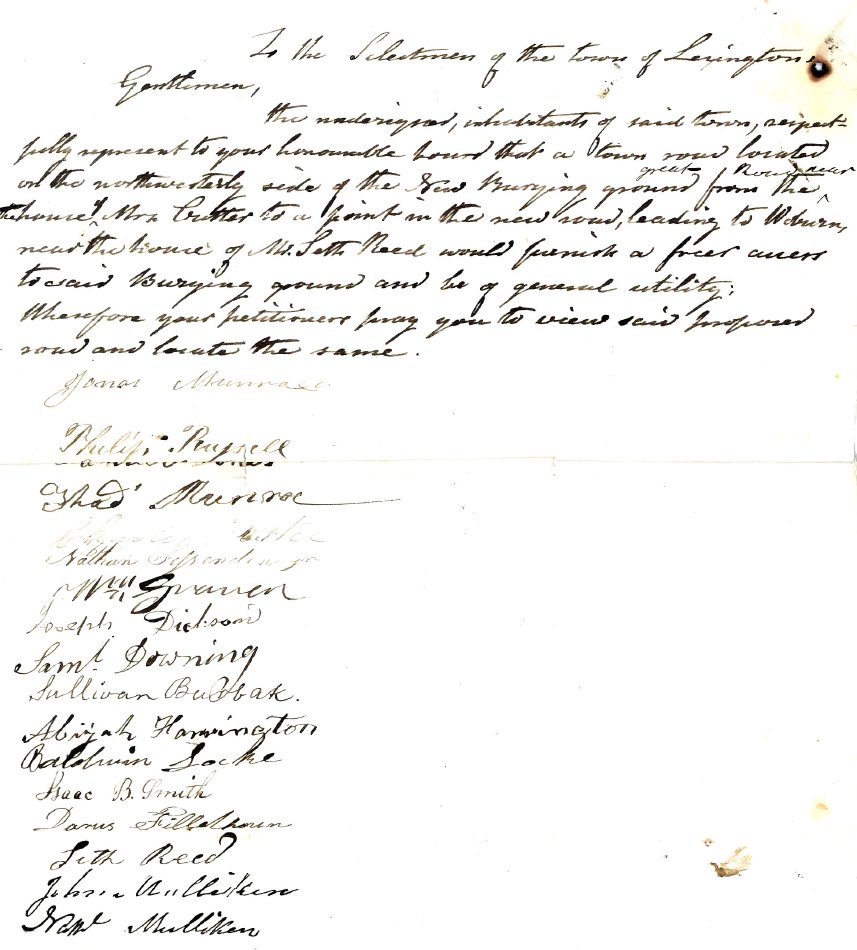 To the Selectmen of the town of Lexington.
Gentlemen,
the undersigned, inhabitants of said town, respect-
fully represent to your honourable board that a town road located
on the northwesterly side of the New Burying ground from the great Road near
the house of Mrs Cutter to a point in the new road, leading to Woburn,
near the house of Mr. Seth Reed would furnish a freer access
to said Burying ground and be of general utility;
Wherefore your petitioners pray you to view said proposed
road and locate the same.
Jonas Munroe
Philip Russell
Thad.s Munroe
Nathan Fessenden jr
Wm
Joseph Dickson
Saml Downing
Sullivan Burbak.
Abijah Harrington
Baldwin Locke
Isaac B. Smith
Darus
Seth Reed
John Mulliken
Nathl Mulliken